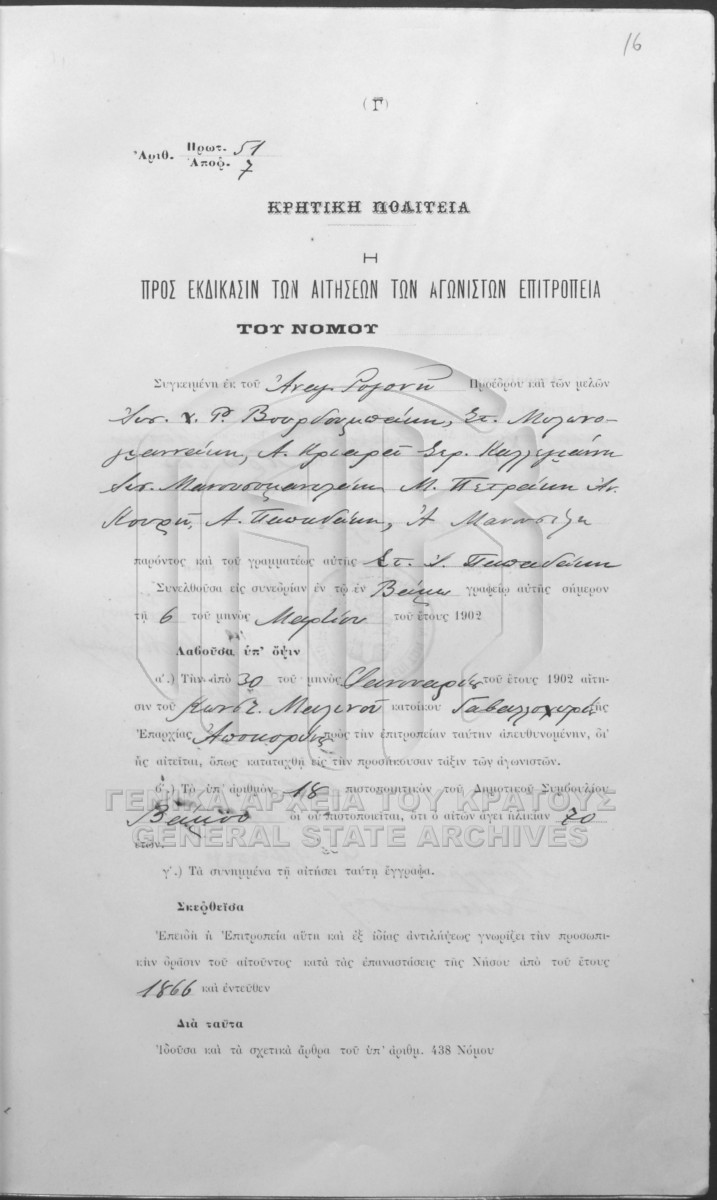 16
(Γ)
Ἀριθ. Πρωτ. 51
Ἀποφ. 7
ΚΡΗΤΙΚΗ ΠΟΛΙΤΕΙΑ
Η
ΠΡΟΣ ΕΚΔΙΚΑΣΙΝ ΤΩΝ ΑΙΤΗΣΕΩΝ ΤΩΝ ΑΓΩΝΙΣΤΩΝ ΕΠΙΤΡΟΠΕΙΑ
ΤΟΥ ΝΟΜΟΥ
Συγκειμένη ἐκ τοῦ Ἀναγ. Προέδρου καὶ τῶν μελῶν
Χ. Ρ. Βουρδουμπάκη, Στ. Μυλωνο-
γιαννάκη, Α. Κριαρᾶ Σερ. Καλλιγιάννη
Μανουσογιαννάκη Μ. Πετράκη Αν.
Κουρῆ, Α. Παπαδάκη, Α
παρόντος καὶ τοῦ γραμματέως αὐτῆς Στ. Παπαδάκη
Συνελθοῦσα εἰς συνεδρίαν ἐν τῷ ἐν Βάμῳ γραφείῳ αὐτῆς σήμερον
τῇ 6 τοῦ μηνὸς Μαρτίου τοῦ ἔτους 1902
Λαβοῦσα ὑπ' ὄψιν
α'.) Τὴν ἀπὸ 30 τοῦ μηνὸς Ἰανουαρίου τοῦ ἔτους 1902 αἴτη-
σιν τοῦ Κωνστ. Μαλινοῦ κατοίκου Γαβαλοχωρίου τῆς
Ἐπαρχίας Ἀποκορώνου πρὸς τὴν ἐπιτροπείαν ταύτην ἀπευθυνομένην, δι'
ἧς αἰτεῖται, ὅπως καταταχθῇ εἰς τὴν προσήκουσαν τάξιν τῶν ἀγωνιστῶν.
β'.) Τὸ ὑπ' ἀριθμὸν 18 πιστοποιητικὸν τοῦ Δημοτικοῦ Συμβουλίου
Βάμου δι' οὗ πιστοποιεῖται, ὅτι ὁ αἰτῶν ἄγει ἡλικίαν 70
ἐτῶν.
γ'.) Τὰ συνημμένα τῇ αἰτήσει ταύτῃ ἔγγραφα.
Σκεφθεῖσα
Ἐπειδὴ ἡ Ἐπιτροπεία αὕτη καὶ ἐξ ἰδίας ἀντιλήψεως γνωρίζει τὴν προσωπι-
κὴν δρᾶσιν τοῦ αἰτοῦντος κατὰ τὰς ἐπαναστάσεις τῆς Νήσου ἀπὸ τοῦ ἔτους
1866 καὶ ἐντεῦθεν
Διὰ ταῦτα
Ἰδοῦσα καὶ τὰ σχετικὰ ἄρθρα τοῦ ὑπ' ἀριθμ. 438 Νόμου
ΓΕΝΙΚΑ ΑΡΧΕΙΑ ΤΟΥ ΚΡΑΤΟΥΣ
GENERAL STATE ARCHIVES